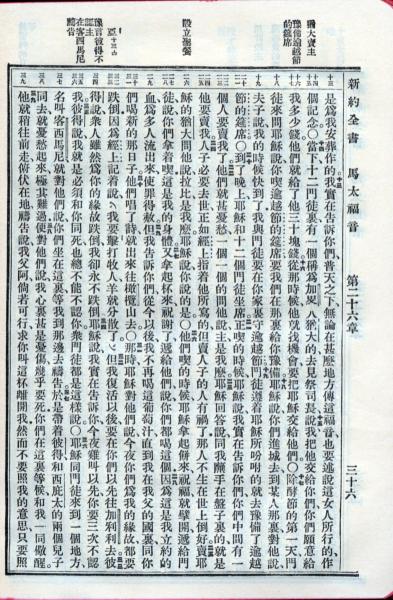 新約全書 馬太福音 第二十六章 三十六
猶大賣主
豫備逾越節
的筵席
設立聖餐
豫言彼得不
認主
在客西馬尼
禱告
是爲我安葬作的、我實在告訴你們、普天之下、無論在甚麼地方傳這福音、也要述說這女人所行的、作
個記念。〇當下十二門徒裏、有一個稱爲加畧人猶大的、去見祭司長說、我把他交給你們、你們願意給
我多少錢、他們就給了他三十塊錢、從那時候他就找機會、要把耶穌交給他們。〇除酵節的第一天、門
徒來問耶穌說、你喫逾越節的筵席、要我們在那裏給你豫備、耶穌說、你們進城去、到某人那裏、對他說、
夫子說、我的時候快到了、我與門徒要在你家裏守逾越節、門徒遵着耶穌所吩咐的、就去豫備了逾越
節的筵席。〇到了晚上、耶穌和十二個門徒坐席、正喫的時候、耶穌說、我實在告訴你們、你們中間有一
個人要賣我了、他們就甚憂愁、一個一個的問他說、主、是我麼、耶穌回答說、同我蘸手在盤子裏的、就是
他要賣我、人子必要去世、正如經上指着他所寫的、但賣人子的人有禍了、那人不生在世上倒好、賣耶
穌的猶大問他說、拉比、是我麼、耶穌說、你說的是。〇他們喫的時候、耶穌拿起餅來、祝福、就擘開、遞給門
徒、說、你們拿着喫、這是我的身體、又拿起杯來、祝謝了、遞給他們、說、你們都喝這個、因爲這是我立約的
血、爲多人流出來、使罪得赦、但我告訴你們、從今以後、我不再喝這葡萄汁、直到我在我父的國裏、同你
們喝新的那日子、他們唱了詩、就出來往橄欖山去。〇那時耶穌對他們說、今夜你們爲我的緣故、都要
跌倒、因爲經上記着說、我要擊打牧人、羊就分散了、但我復活以後、要在你們以先往加利利去、彼
得說、衆人雖然爲你的緣故跌倒、我卻永不跌倒、耶穌說、我實在告訴你、今夜雞叫以先、你要三次不認
我、彼得說、我就是必須和你同死、也總不能不認你、衆門徒都是這樣說。〇耶穌同門徒來到一個地方、
名叫客西馬尼、就對他們說、你們坐在這裏、等我到那邊去禱告、於是帶着彼得、和西庇太的兩個兒子
同去、就憂愁起來、極其難過、便對他們說、我心裏甚是憂傷、幾乎要死、你們在這裏等候、和我一同儆醒、
他就稍往前走、俯伏在地、禱告說、我父阿、倘若可行、求你叫這杯離開我、然而不要照我的意思、只要照